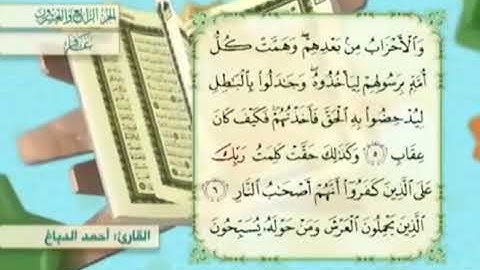 الجزء الرابع والعشرون
غافر
وَٱلْأَحْزَابُ مِنۢ بَعْدِهِمْ ۖ وَهَمَّتْ كُلُّ
أُمَّةٍۭ بِرَسُولِهِمْ لِيَأْخُذُوهُ ۖ وَجَٰدَلُوا۟ بِٱلْبَٰطِلِ
لِيُدْحِضُوا۟ بِهِ ٱلْحَقَّ فَأَخَذْتُهُمْ ۖ فَكَيْفَ كَانَ
عِقَابِ ٥ وَكَذَٰلِكَ حَقَّتْ كَلِمَتُ رَبِّكَ
عَلَى ٱلَّذِينَ كَفَرُوٓا۟ أَنَّهُمْ أَصْحَٰبُ ٱلنَّارِ ٦
ٱلَّذِينَ يَحْمِلُونَ ٱلْعَرْشَ وَمَنْ حَوْلَهُۥ يُسَبِّحُونَ
القارئ: أحمد الدباغ